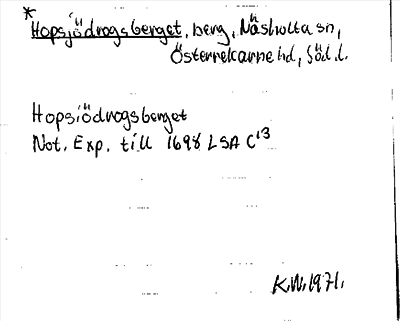 *
Hopsjödrogsberget, berg, Näshulta sn,
Österrekarne hd, Söd. l.
Hopsiödrogsberget
Not. Exp. till 1698 LSA C¹3
K.W. 1971.